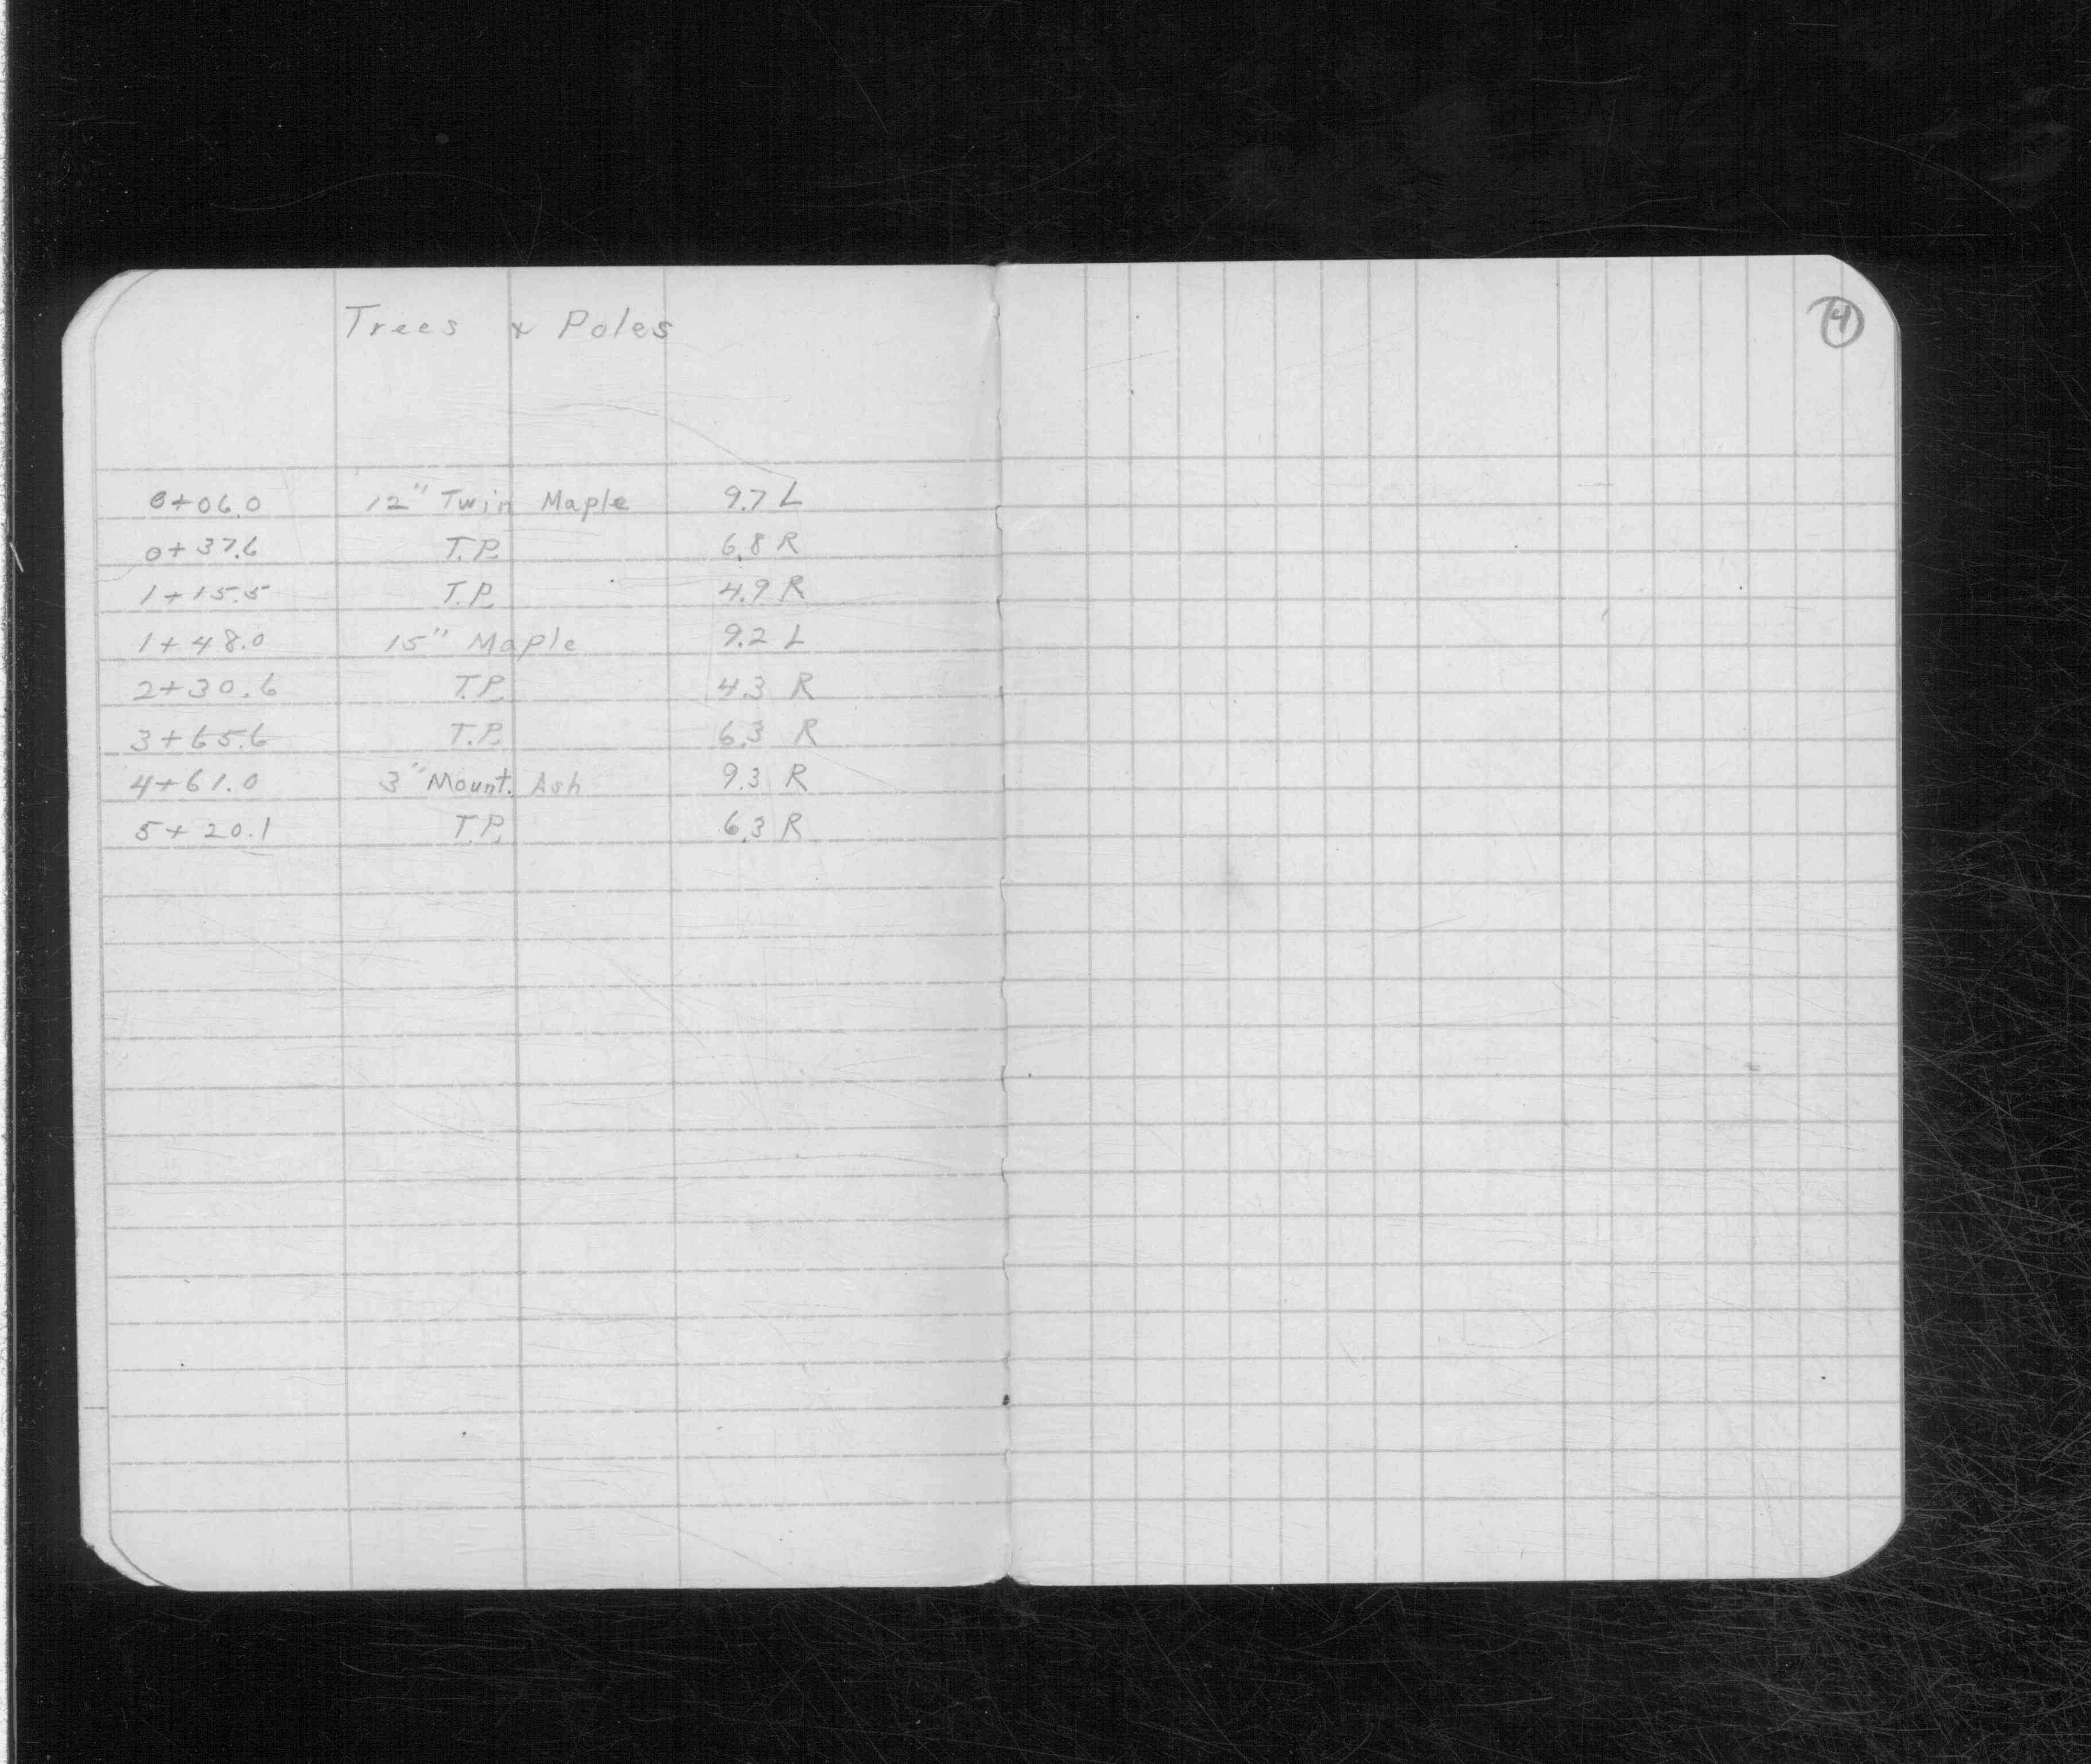 Trees & Poles
4
0+06.0 12" Twin Maple 9.7 L
0+37.6 T.P. 6.8 R
1+15.5 T.P. 4.9 R
1+48.0 15" Maple 9.2 L
2+30.6 T.P. 4.3 R
3+65.6 T.P. 6.3 R
4+61.0 3" Mount. Ash 9.3 R
5+20.1 T.P. 6.3 R